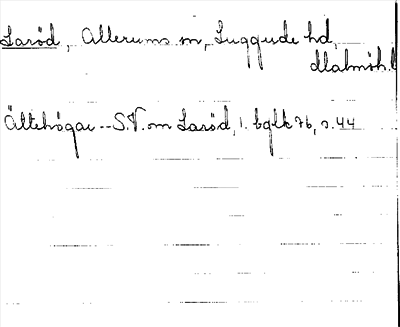 Larød, Allerums sn, Luggude hd,
Malmöh. l
Ältehögar -- S.V. om Larød, 1. bglk 76, s. 44